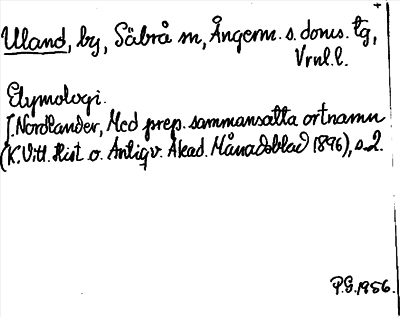 Uland, by, Säbrå sn, Ångerm. s. doms. tg,
Vrnl. l.
Etymologi.
J. Nordlander, Med prep. sammansatta ortnamn
(K. Vitt. Hist o. Antiqv. Akad. Månadsblad 1896), s. 2.
P.G. 1956.